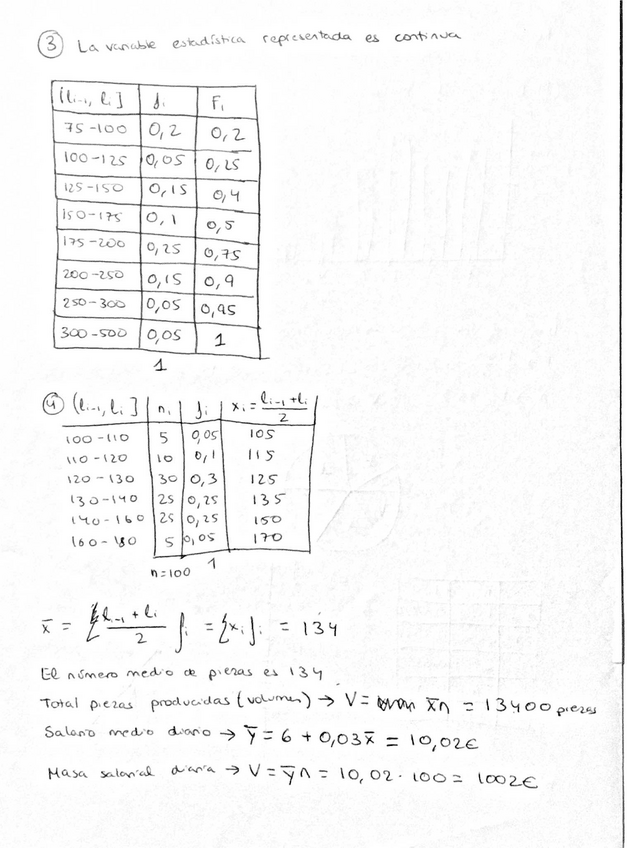 3 La variable estadística representada es continua
[li-1, li] fi Fi
75-100 0,2 0,2
100-125 0,05 0,25
125-150 0,15 0,4
150-175 0,1 0,5
175-200 0,25 0,75
200-250 0,15 0,9
250-300 0,05 0,95
300-500 0,05 1
1
4 (li-1, li] ni fi xi = (li-1 + li)/2
100-110 5 0,05 105
110-120 10 0,1 115
120-130 30 0,3 125
130-140 25 0,25 135
140-160 25 0,25 150
160-180 5 0,05 170
n=100 1
x̄ = Σ (li-1 + li)/2 fi = Σ xi fi = 134
El número medio de piezas es 134
Total piezas producidas (volumen) → V = x̄n = 13400 piezas
Salario medio diario → ȳ = 6 + 0,03x̄ = 10,02€
Masa salarial diaria → V = ȳn = 10,02 · 100 = 1002€